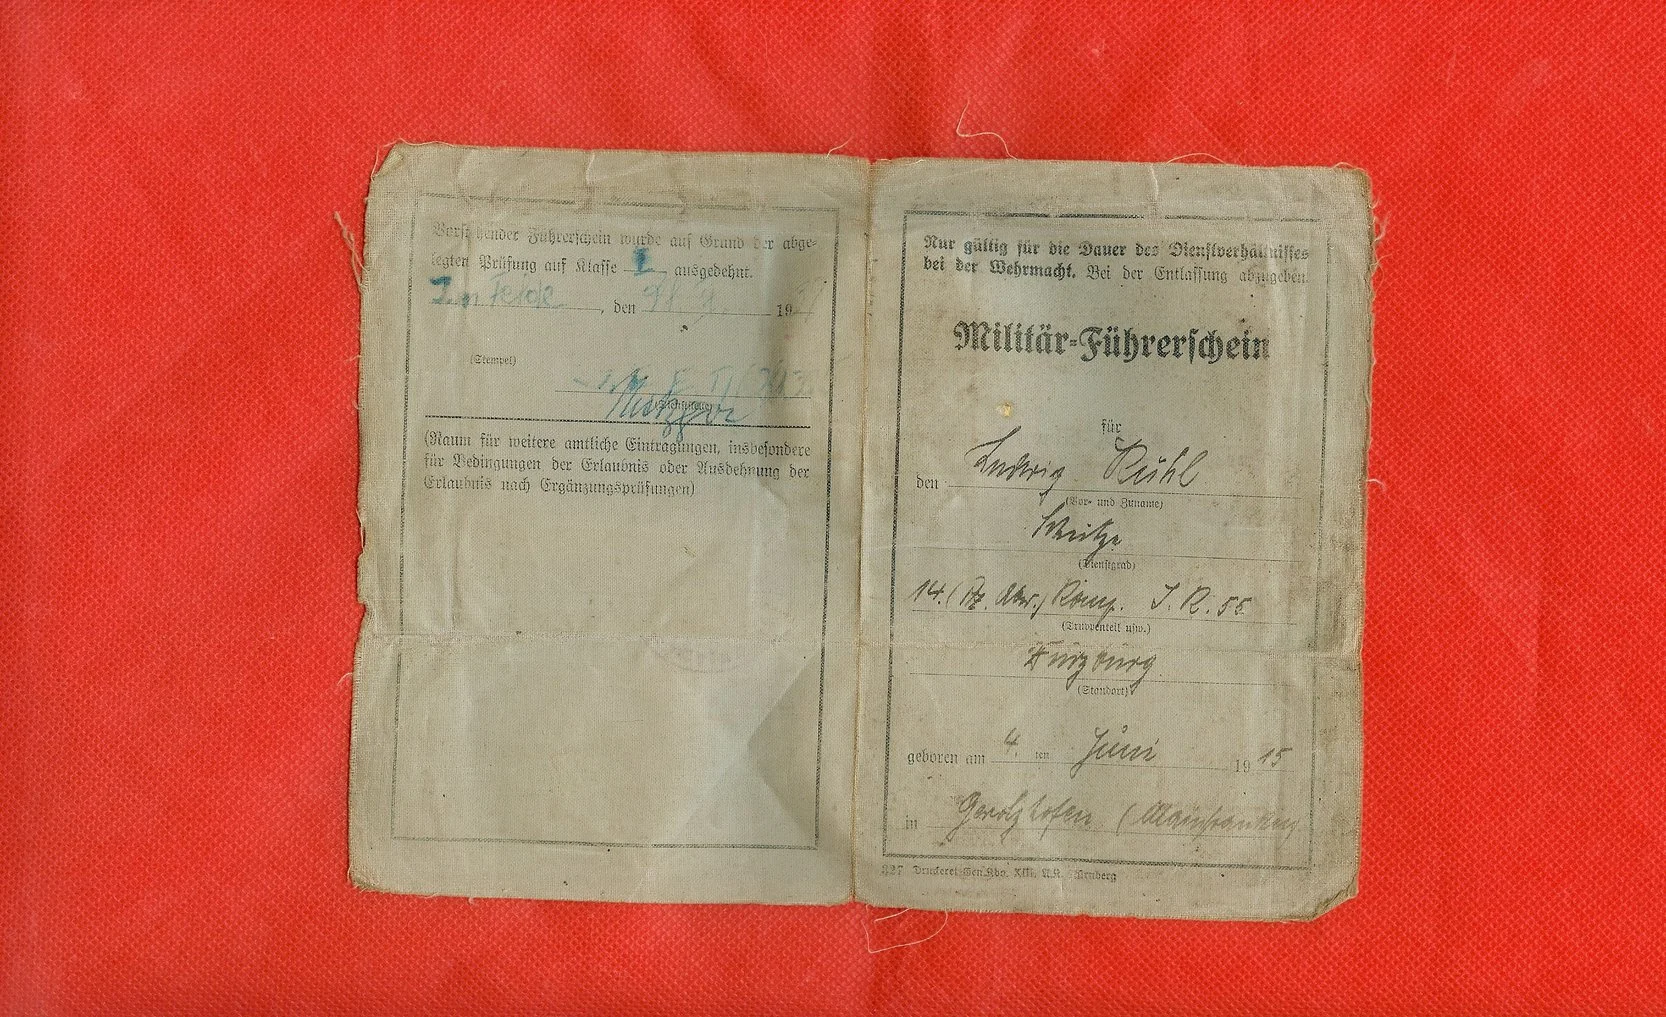 Vorstehender Führerschein wurde auf Grund der abge-
legten Prüfung auf Klasse I ausgedehnt.
Im Felde, den 9. 19
(Stempel)
(Raum für weitere amtliche Eintragungen, insbesondere
für Bedingungen der Erlaubnis oder Ausdehnung der
Erlaubnis nach Ergänzungsprüfungen)
Nur gültig für die Dauer des Dienstverhältnisses
bei der Wehrmacht. Bei der Entlassung abzugeben.
Militär-Führerschein
für
den Ludwig Rühl
(Vor- und Zuname)
Schütze
(Dienstgrad)
14. (Pz. Abw.) Komp. I. R. 55
(Truppenteil usw.)
Würzburg
(Standort)
geboren am 4. ten Juni 1915
in Gerolzhofen (Mainfranken)
327 Druckerei Gen.Kdo. XIII. A.K. Nürnberg